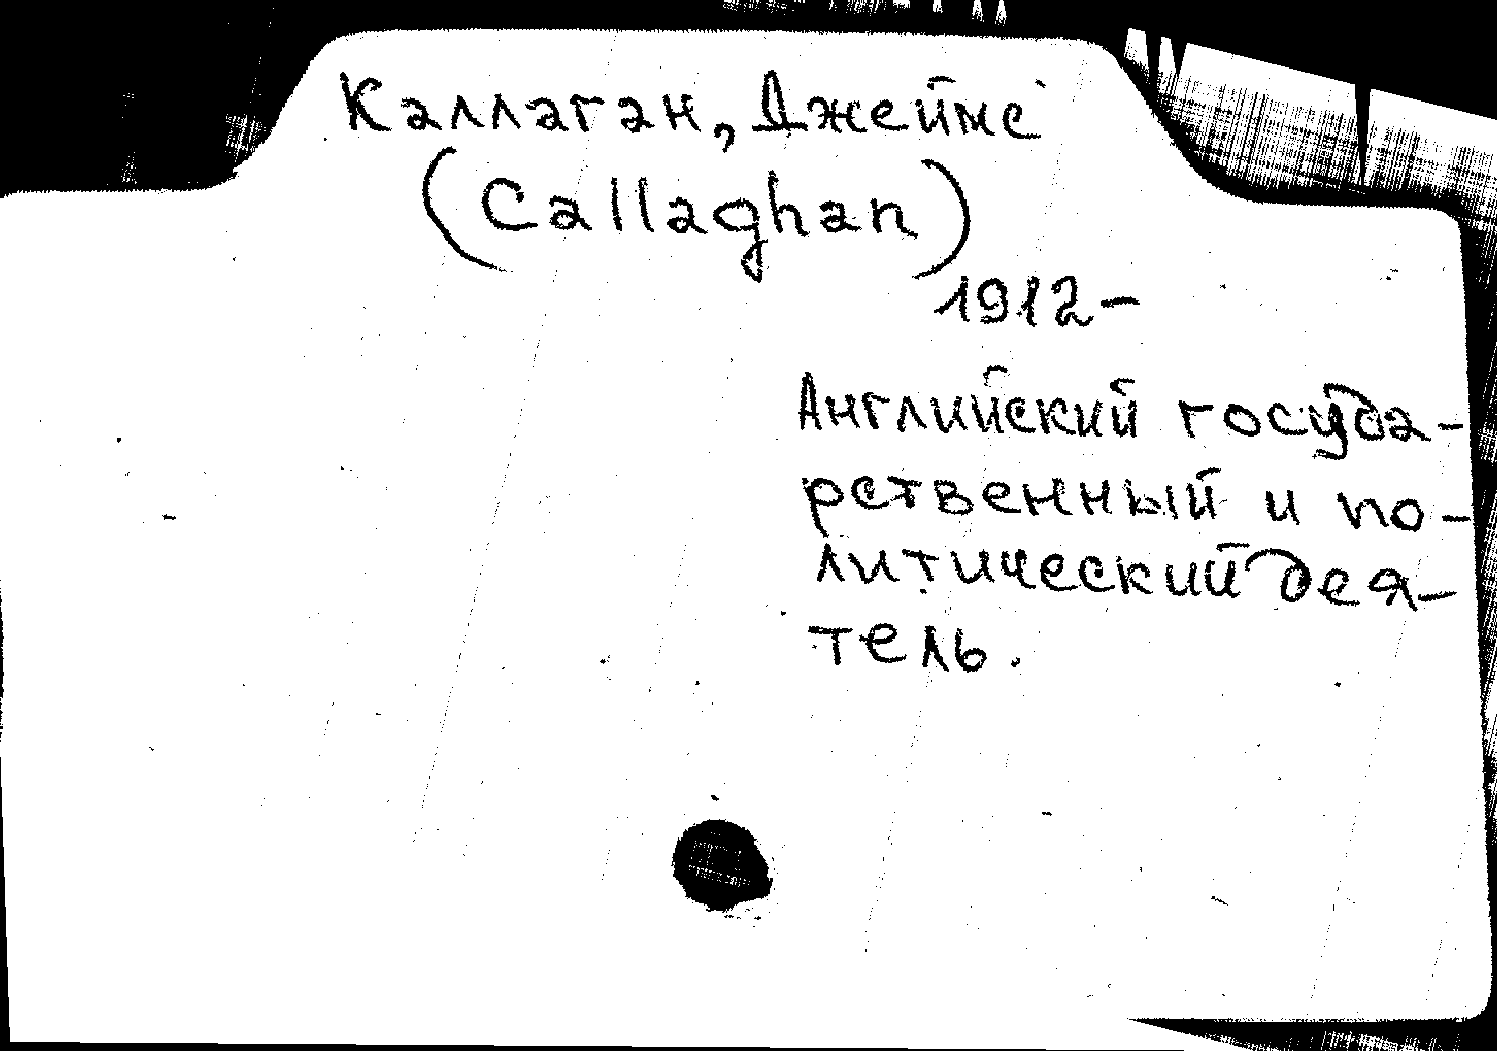 Каллаган, Джеймс
(Callaghan)
1912-
Английский госуда-
рственный и по-
литический дея-
тель.